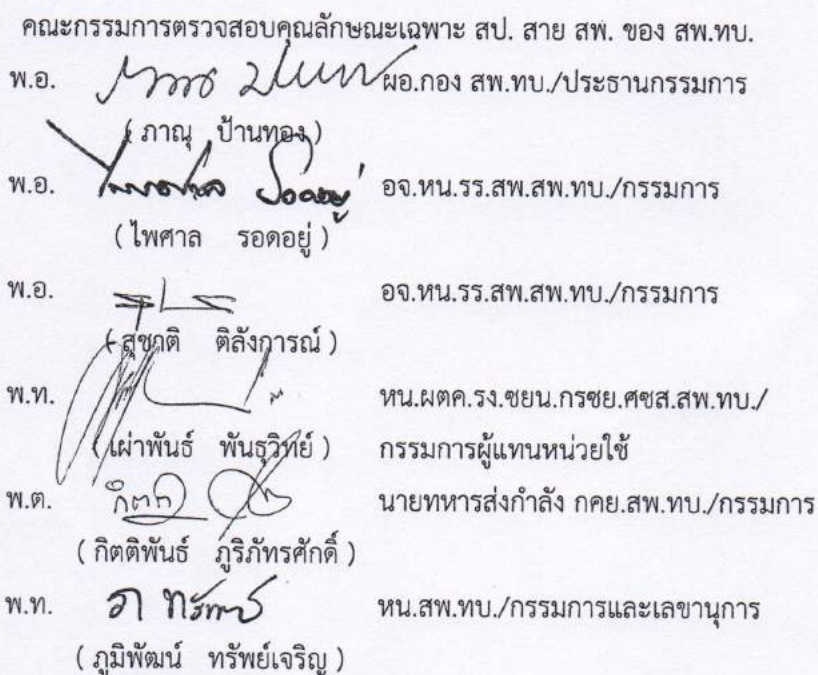 คณะกรรมการตรวจสอบคุณลักษณะเฉพาะ สป. สาย สพ. ของ สพ.ทบ.
พ.อ. ผอ.กอง สพ.ทบ./ประธานกรรมการ
( ภาณุ ป้านทอง )
พ.อ. ไพศาล รอดอยู่ อจ.หน.รร.สพ.สพ.ทบ./กรรมการ
( ไพศาล รอดอยู่ )
พ.อ. อจ.หน.รร.สพ.สพ.ทบ./กรรมการ
( สุชาติ ติลังการณ์ )
พ.ท. หน.ผตค.รง.ซยน.กรซย.ศซส.สพ.ทบ./
( เผ่าพันธ์ พันธุวิทย์ ) กรรมการผู้แทนหน่วยใช้
พ.ต. นายทหารส่งกำลัง กคย.สพ.ทบ./กรรมการ
( กิตติพันธ์ ภูริภัทรศักดิ์ )
พ.ท. หน.สพ.ทบ./กรรมการและเลขานุการ
( ภูมิพัฒน์ ทรัพย์เจริญ )